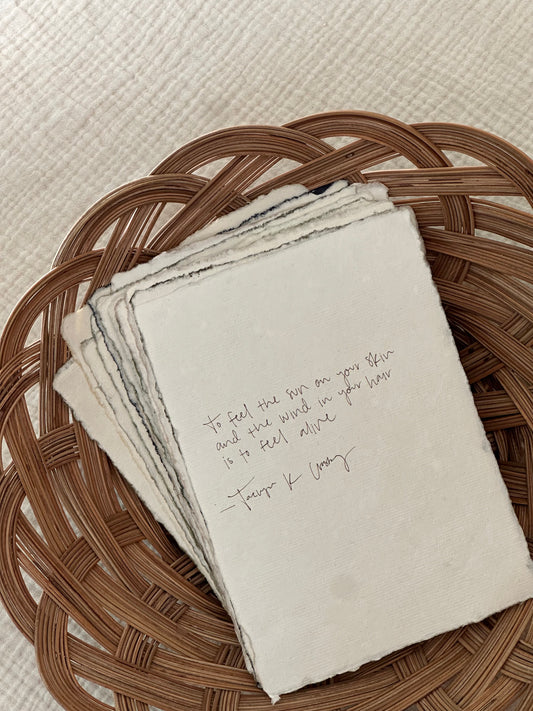 To feel the sun on your skin
and the wind in your hair
is to feel alive
- K